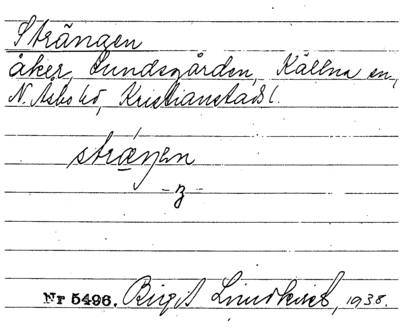 Strängen
åker, Lundsgården, Källna sn,
N. Åsbo hd, Kristianstads l.
stræŋen
- z -
Nr 5496. Birgit Lindkvist, 1938.